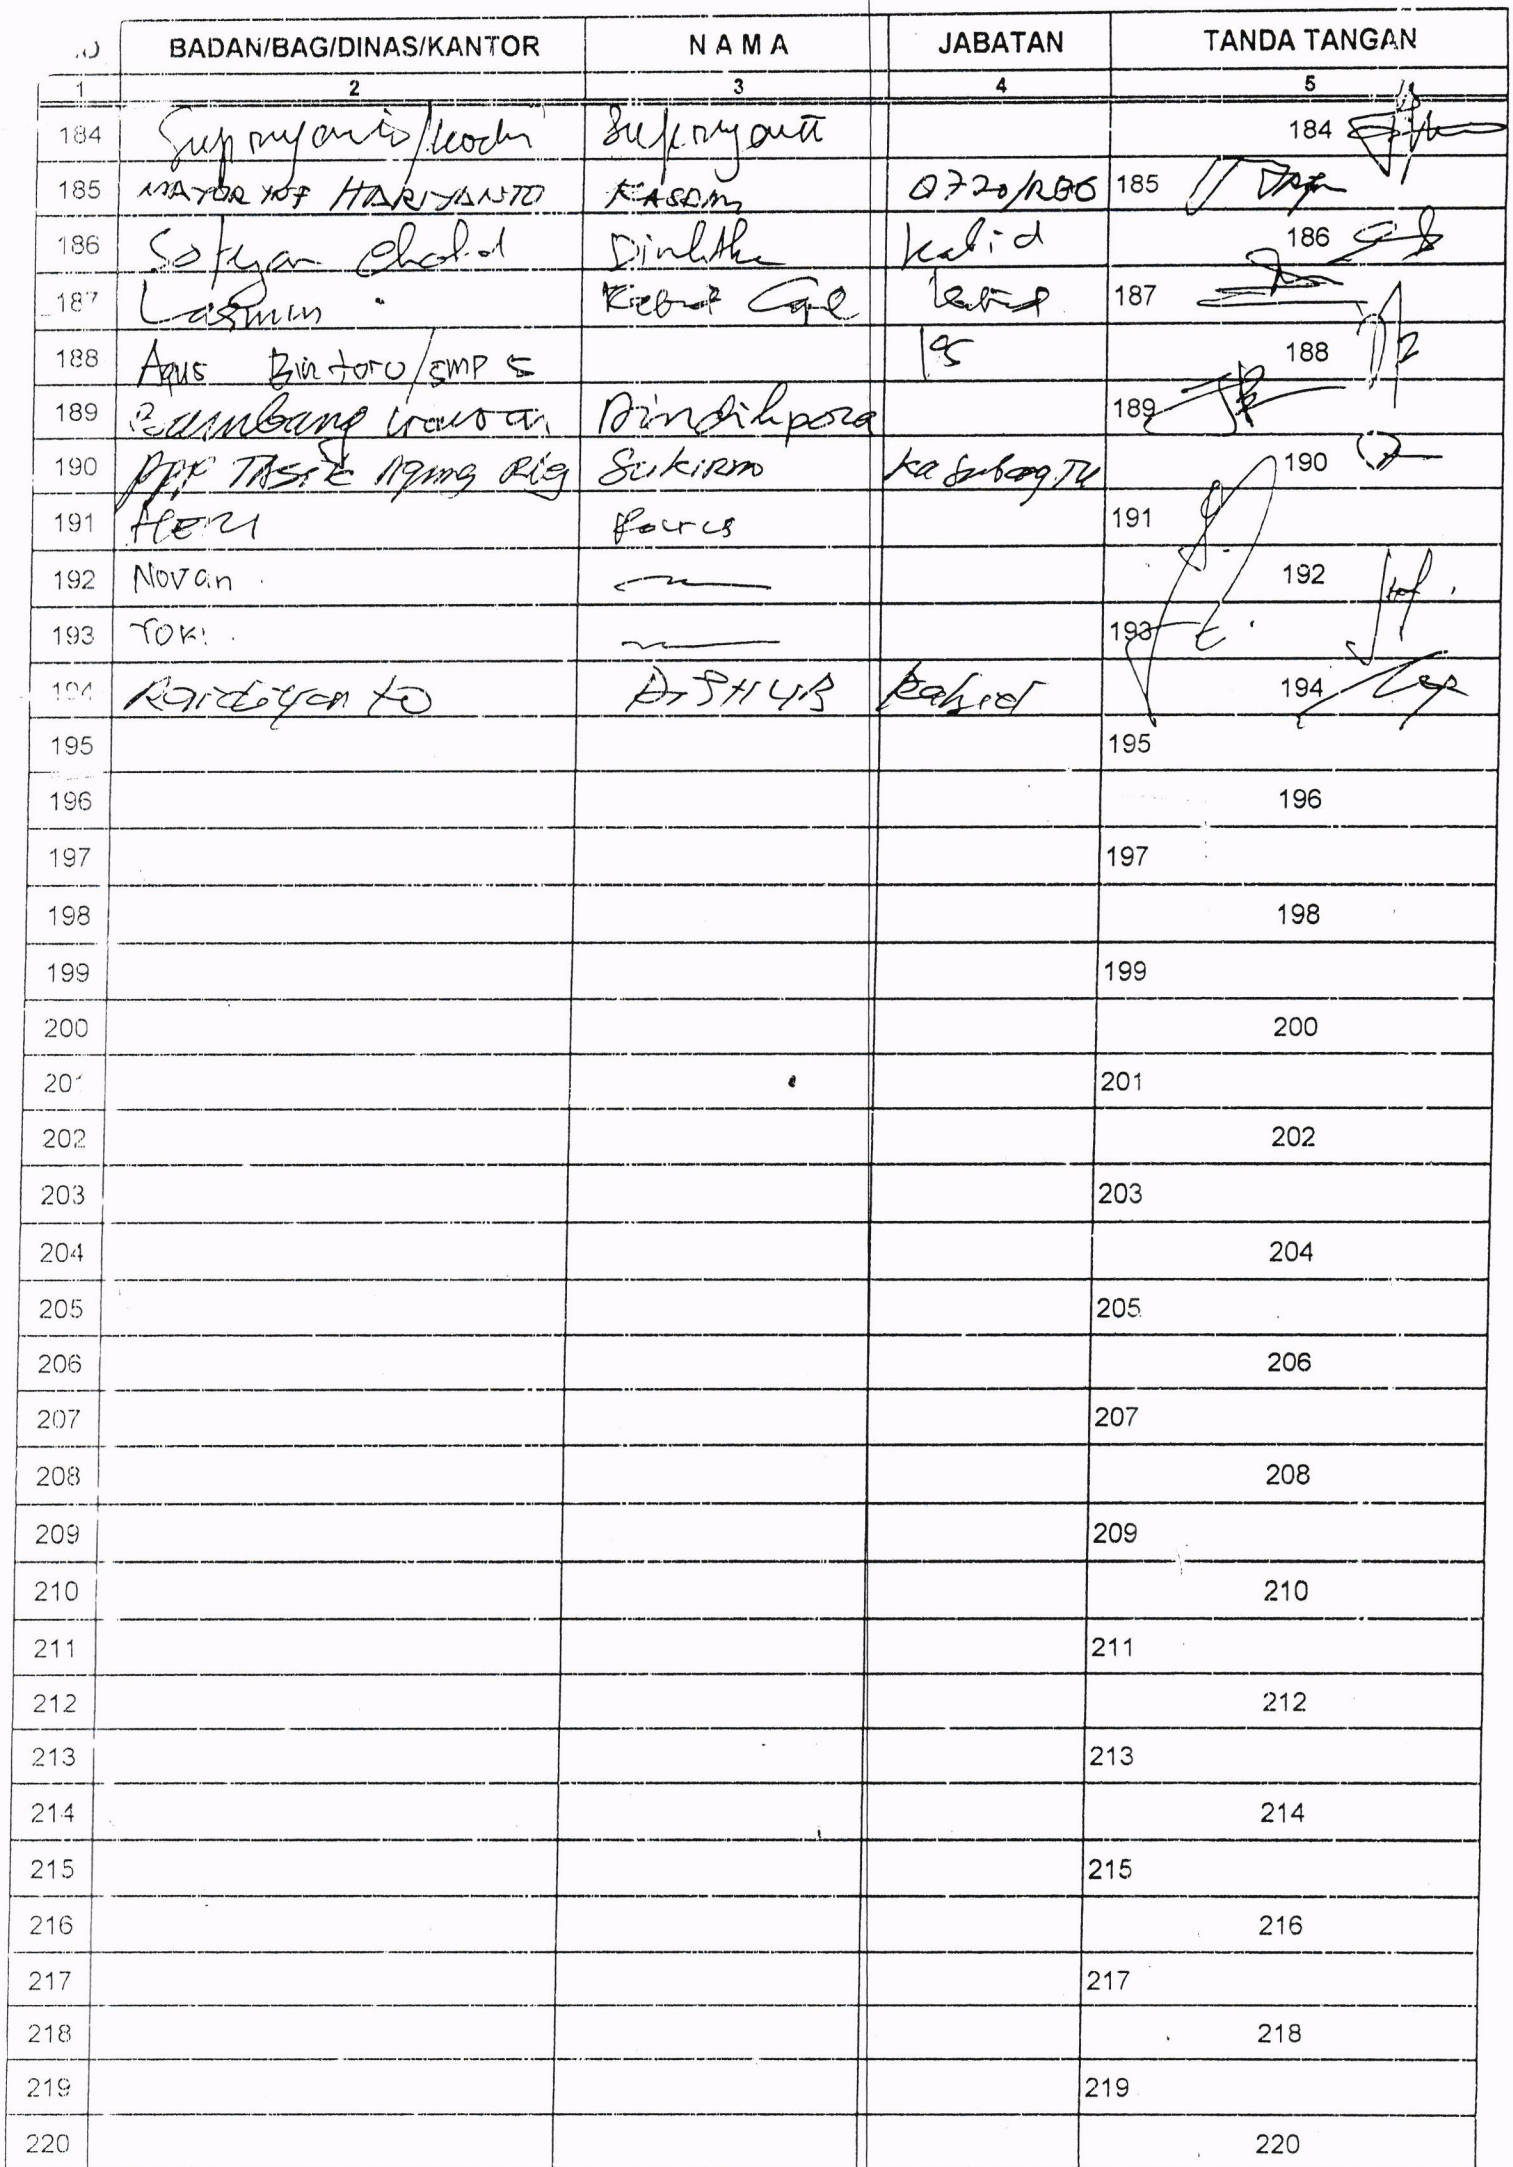 BADAN/BAG/DINAS/KANTOR N A M A JABATAN TANDA TANGAN
1 2 3 4 5
184 184
185 MAYOR INF HARIYANTO KASDIM 0720/RBG 185
186 Sofyan Cholid 186
187 Lasmin 187
188 Agus Bintoro/SMP 5 188
189 Bambang Irawan Dindikpora 189
190 PPP TASIK Agung Sukirno Kasubag TU 190
191 HERI 191
192 Novan 192
193 YOKI 193
194 DISHUB Kabid 194
195 195
196 196
197 197
198 198
199 199
200 200
201 201
202 202
203 203
204 204
205 205
206 206
207 207
208 208
209 209
210 210
211 211
212 212
213 213
214 214
215 215
216 216
217 217
218 218
219 219
220 220